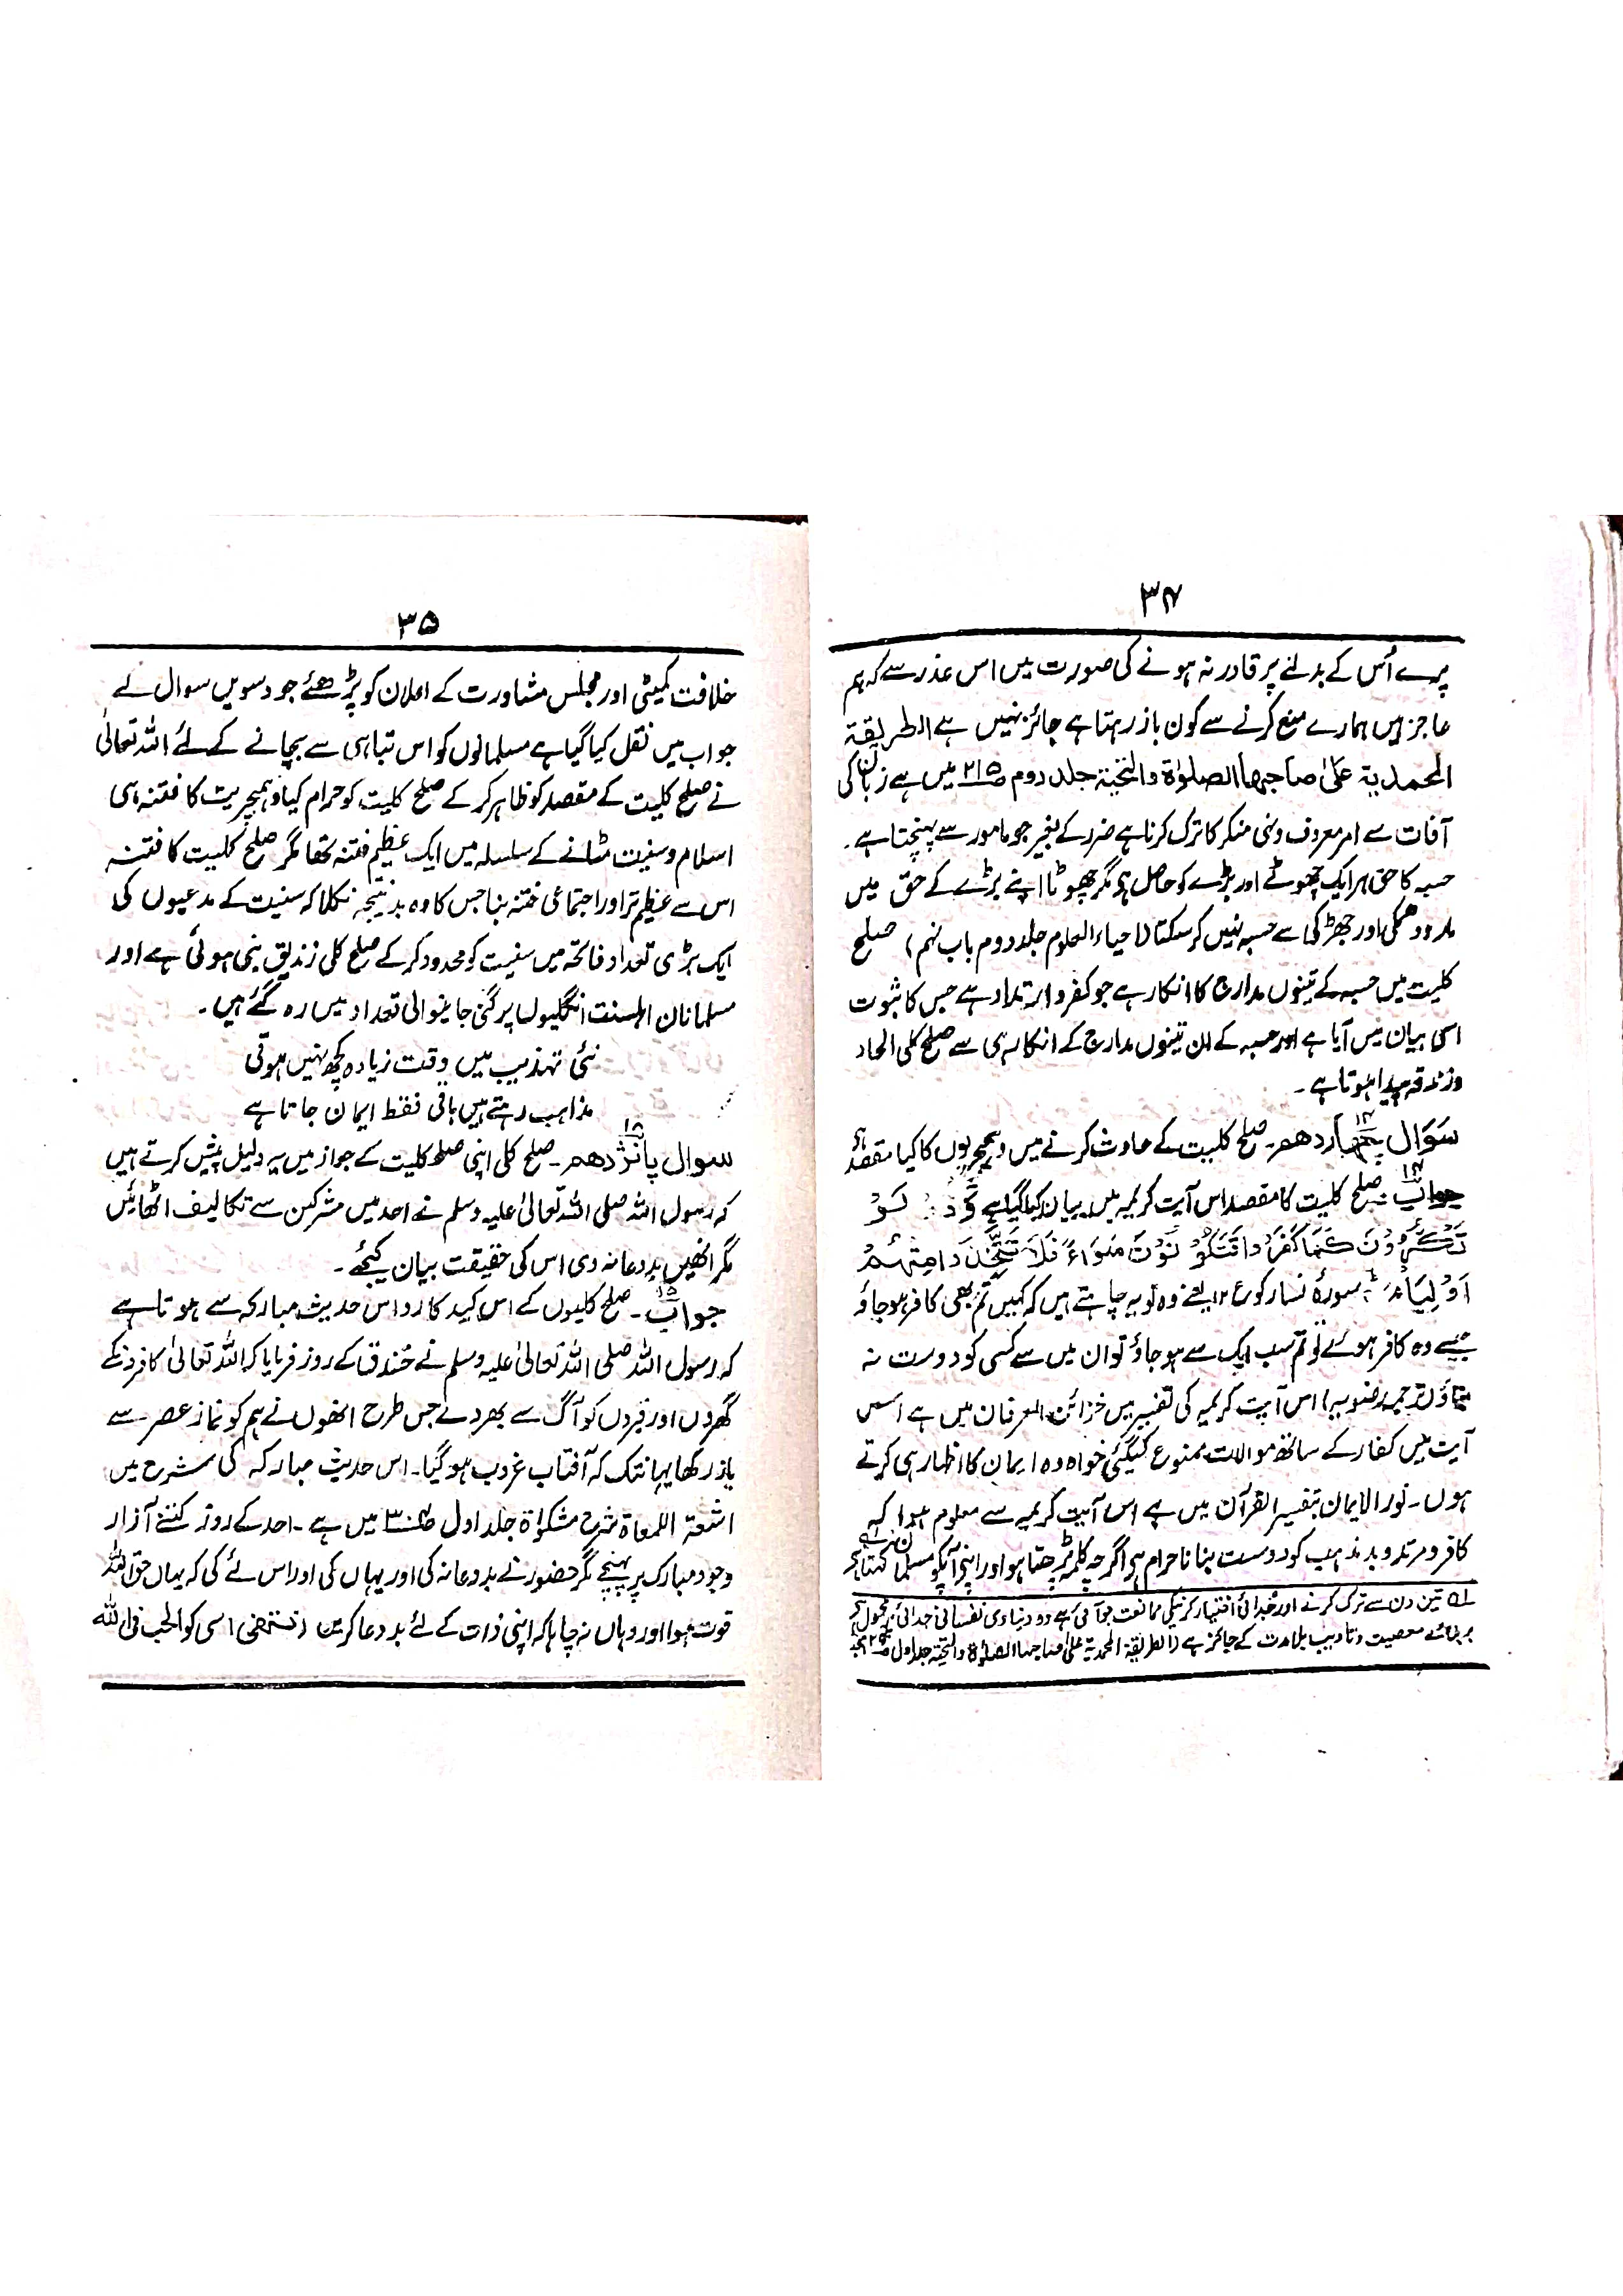 ۳۴
پرے اُس کے بدلنے پر قادر نہ ہونے کی صورت میں اس عذر سے کہ ہم
عاجز ہیں ہمارے منع کرنے سے کون باز رہتا ہے جائز نہیں ہے الطریقۃ
المحمدیۃ علیٰ صاحبھا الصلوٰۃ والتحیۃ جلد دوم ص۲۱۵ میں ہے زبان کی
آفات سے امر معروف ونہی منکر کا ترک کرنا ہے ضرر کے بغیر جو مامور سے پہنچتا ہے۔
حسبہ کا حق ہر ایک چھوٹے اور بڑے کو حاصل ہے مگر چھوٹا اپنے بڑے کے حق میں
مار و دھمکی اور جھڑکی سے حسبہ نہیں کرسکتا (احیاء العلوم جلد دوم باب نہم) صلح
کلیت میں حسبہ کے تینوں مدارج کا انکار ہے جو کفر و ارتداد ہے جس کا ثبوت
اسی بیان میں آیا ہے اور حسبہ کے ان تینوں مدارج کے انکار ہی سے صلح کلی الحاد
وزندقہ پیدا ہوتا ہے۔
سوال ۱۴ چہاردھم۔ صلح کلیت کے حادث کرنے میں ونیچریوں کا کیا مقصد ہے
جواب ۱۴۔ صلح کلیت کا مقصد اس آیت کریمہ میں بیان کیا گیا ہے وَدُّوْا لَوْ
تَكْفُرُوْنَ كَمَا كَفَرُوْا فَتَكُوْنُوْنَ سَوَاءً فَلَا تَتَّخِذُوْا مِنْهُمْ
اَوْلِيَاءَ سورۂ نساء رکوع ۱۲ یعنے وہ تو یہ چاہتے ہیں کہ کہیں تم بھی کافر ہوجاؤ
جیسے وہ کافر ہوئے تو تم سب ایک سے ہوجاؤ تو ان میں سے کسی کو دوست نہ
بناؤ (ترجمہ رضویہ) اس آیت کریمہ کی تفسیر میں خزائن العرفان میں ہے اس
آیت میں کفار کے ساتھ موالات ممنوع کیگئی خواہ وہ ایمان کا اظہار ہی کرتے
ہوں۔ نور الایمان بتفسیر القرآن میں ہے اس آیت کریمہ سے معلوم ہوا کہ
کافر و مرتد و بد مذہب کو دوست بنانا حرام ہے اگرچہ کلمہ پڑھتا ہو اور اپنے آپکو مسلمان کہتا ہے
تین دن سے ترک کرنے اور جُدائی اختیار کرنیکی ممانعت جو آئی ہے وہ دنیاوی نفسانی جدائی پر محمول ہے
برائے معصیت وتادیب بلامدت کے جائز ہے (الطریقۃ المحمدیۃ علیٰ صاحبہا الصلوٰۃ والتحیۃ جلد اول
۳۵
خلافت کمیٹی اور مجلس مشاورت کے اعلان کو پڑھئے جو دسویں سوال کے
جواب میں نقل کیا گیا ہے مسلمانوں کو اس تباہی سے بچانے کے لئے اللہ تعالیٰ
نے صلح کلیت کے مقصد کو ظاہر کرکے صلح کلیت کو حرام کیا ونیچریت کا فتنہ ہی
اسلام وسنیت مٹانے کے سلسلہ میں ایک عظیم فتنہ تھا مگر صلح کلیت کا فتنہ
اس سے عظیم تر اور اجتماعی فتنہ بنا جس کا وہ بد نتیجہ نکلا کہ سنیت کے مدعیوں کی
ایک بڑی تعداد فاتحہ میں سنیت کو محدود کرکے صلح کلی زندیق بنی ہوئی ہے اور
مسلمانان اہلسنت انگلیوں پر گنی جانیوالی تعداد میں رہ گئے ہیں۔
نئی تہذیب میں وقت زیادہ کچھ نہیں ہوتی
مذاہب رہتے ہیں باقی فقط ایمان جاتا ہے
سوال ۱۵ پانژدھم۔ صلح کلی اپنی صلح کلیت کے جواز میں یہ دلیل پیش کرتے ہیں
کہ رسول اللہ صلی اللہ تعالیٰ علیہ وسلم نے احد میں مشرکین سے تکالیف اٹھائیں
مگر انھیں بد دعا نہ دی اس کی حقیقت بیان کیجئے۔
جواب ۱۵۔ صلح کلیوں کے اس کید کا رد اس حدیث مبارکہ سے ہوتا ہے
کہ رسول اللہ صلی اللہ تعالیٰ علیہ وسلم نے خندق کے روز فرمایا کہ اللہ تعالیٰ کافروں کے
گھروں اور قبروں کو آگ سے بھردے جس طرح انھوں نے ہم کو نماز عصر سے
باز رکھا یہانتک کہ آفتاب غروب ہوگیا۔ اس حدیث مبارکہ کی شرح میں
اشعۃ اللمعاۃ شرح مشکوٰۃ جلد اول میں ہے۔ احد کے روز کتنے آزار
وجود مبارک پر پہنچے مگر حضور نے بد دعا نہ کی اور یہاں کی اور اس لئے کی کہ یہاں حق اللہ
فوت ہوا اور وہاں نہ چاہا کہ اپنی ذات کے لئے بد دعا کریں (انتھی) اسی کو الحب فی اللہ